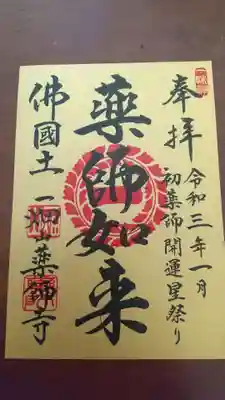 奉拝
令和三年一月
初薬師開運星祭り
薬師如来
佛國土 一畑山薬師寺